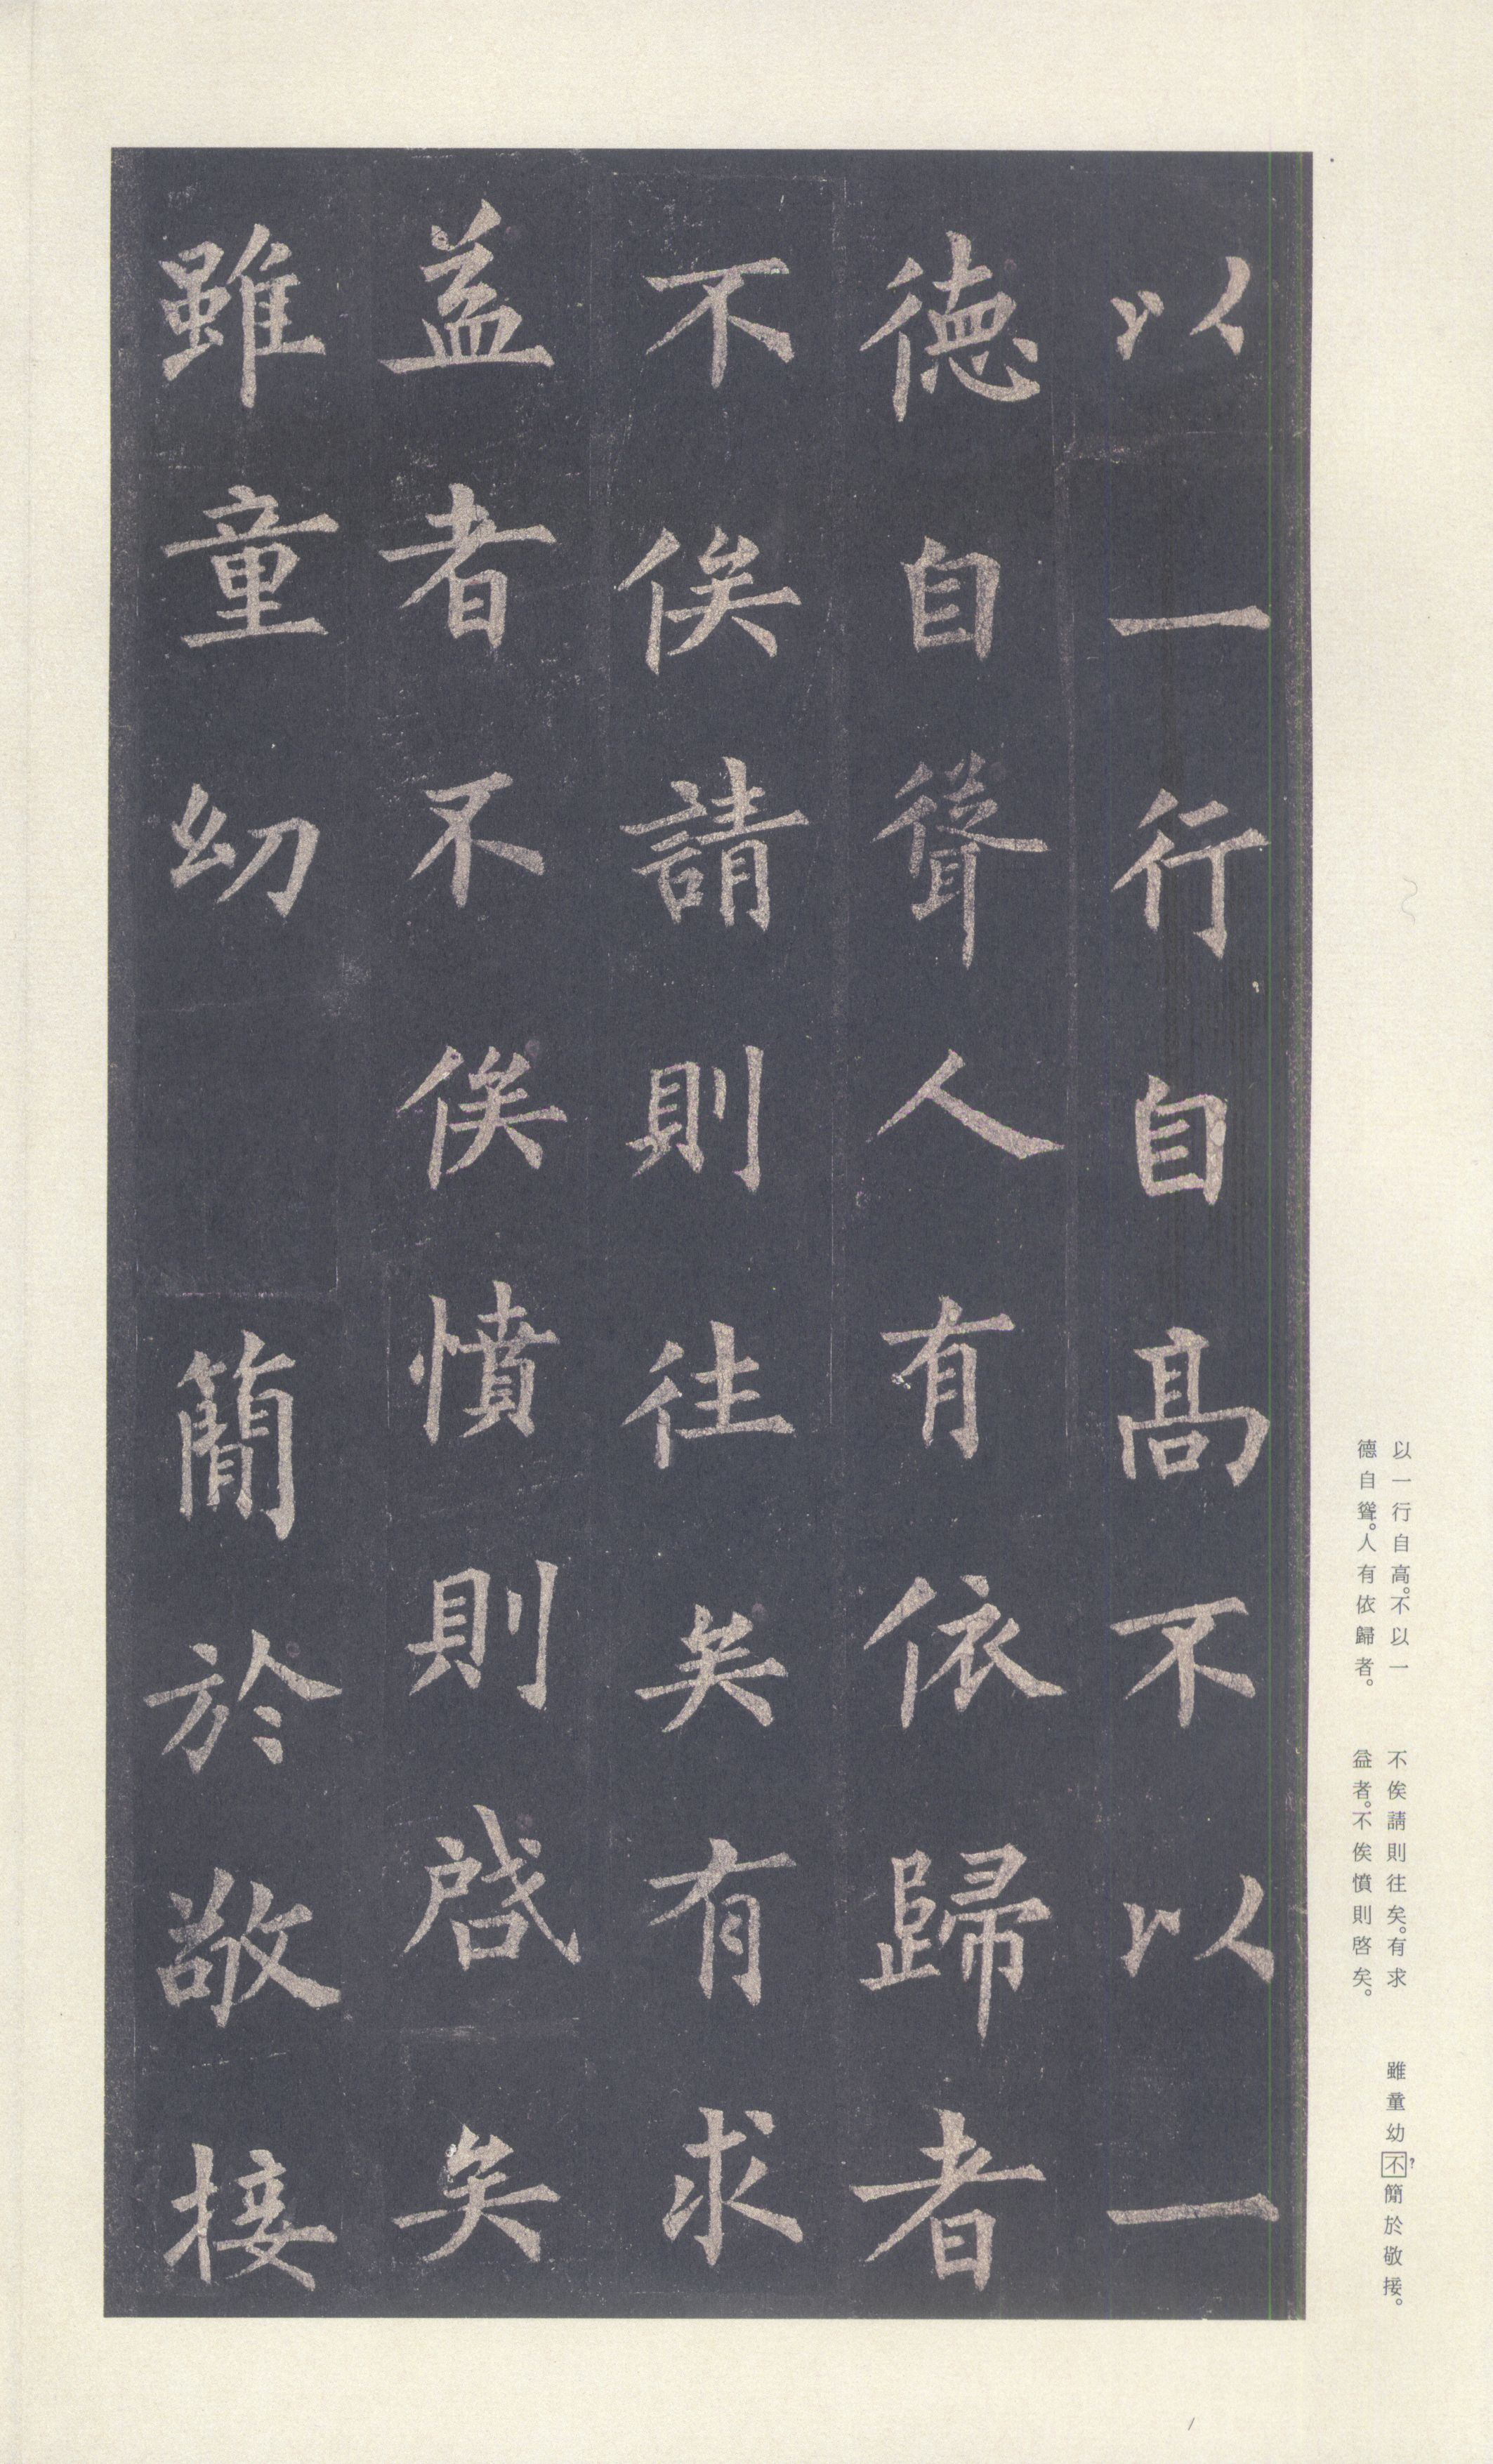 以一行自高不以一
德自聳人有依歸者
不俟請則往矣有求
益者不俟憤則啓矣
雖童幼簡於敬接
以一行自高。不以一
德自聳。人有依歸者。
不俟請則往矣。有求
益者。不俟憤則啓矣。
雖童幼不?簡於敬接。